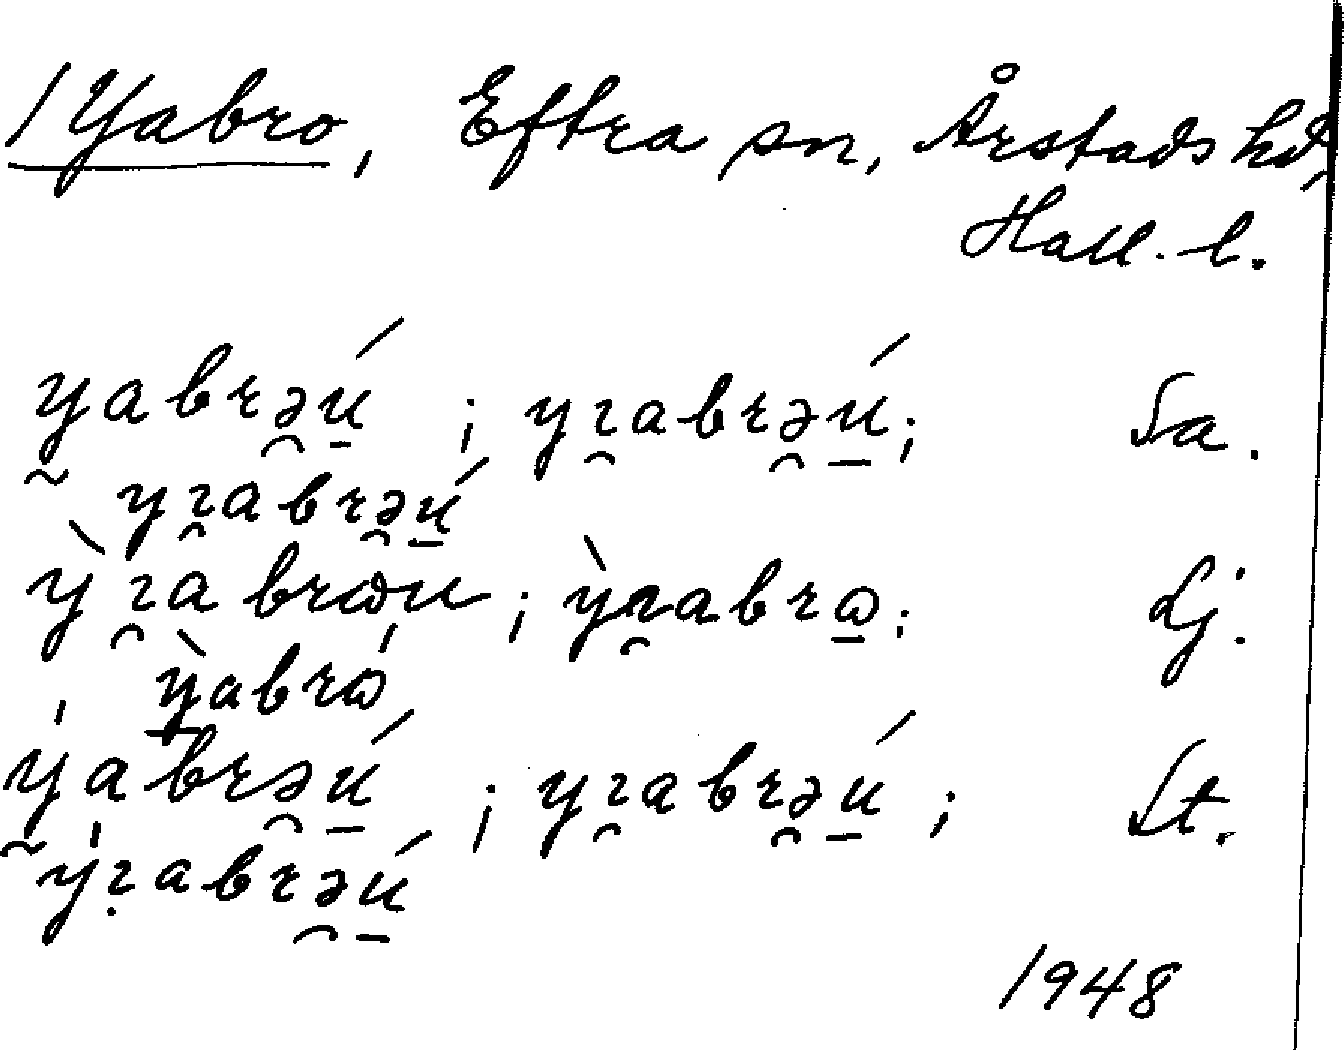 1 Yabro, Eftra sn, Årstads hd,
Hall. l.
yabrə̯ú̱ ; yɿ̯abrə̯ú̱; Sa.
~ yɿ̯abrə̯ú̱
ỳɿ̯abrɷu ; ỳɿ̯abrɷ̱; Lj.
ỳabrɷ́
ýabrə̯ú̱ ; yɿ̯abrə̯ú̱ ; St.
~ ýɿ̣abrə̯ú̱
1948